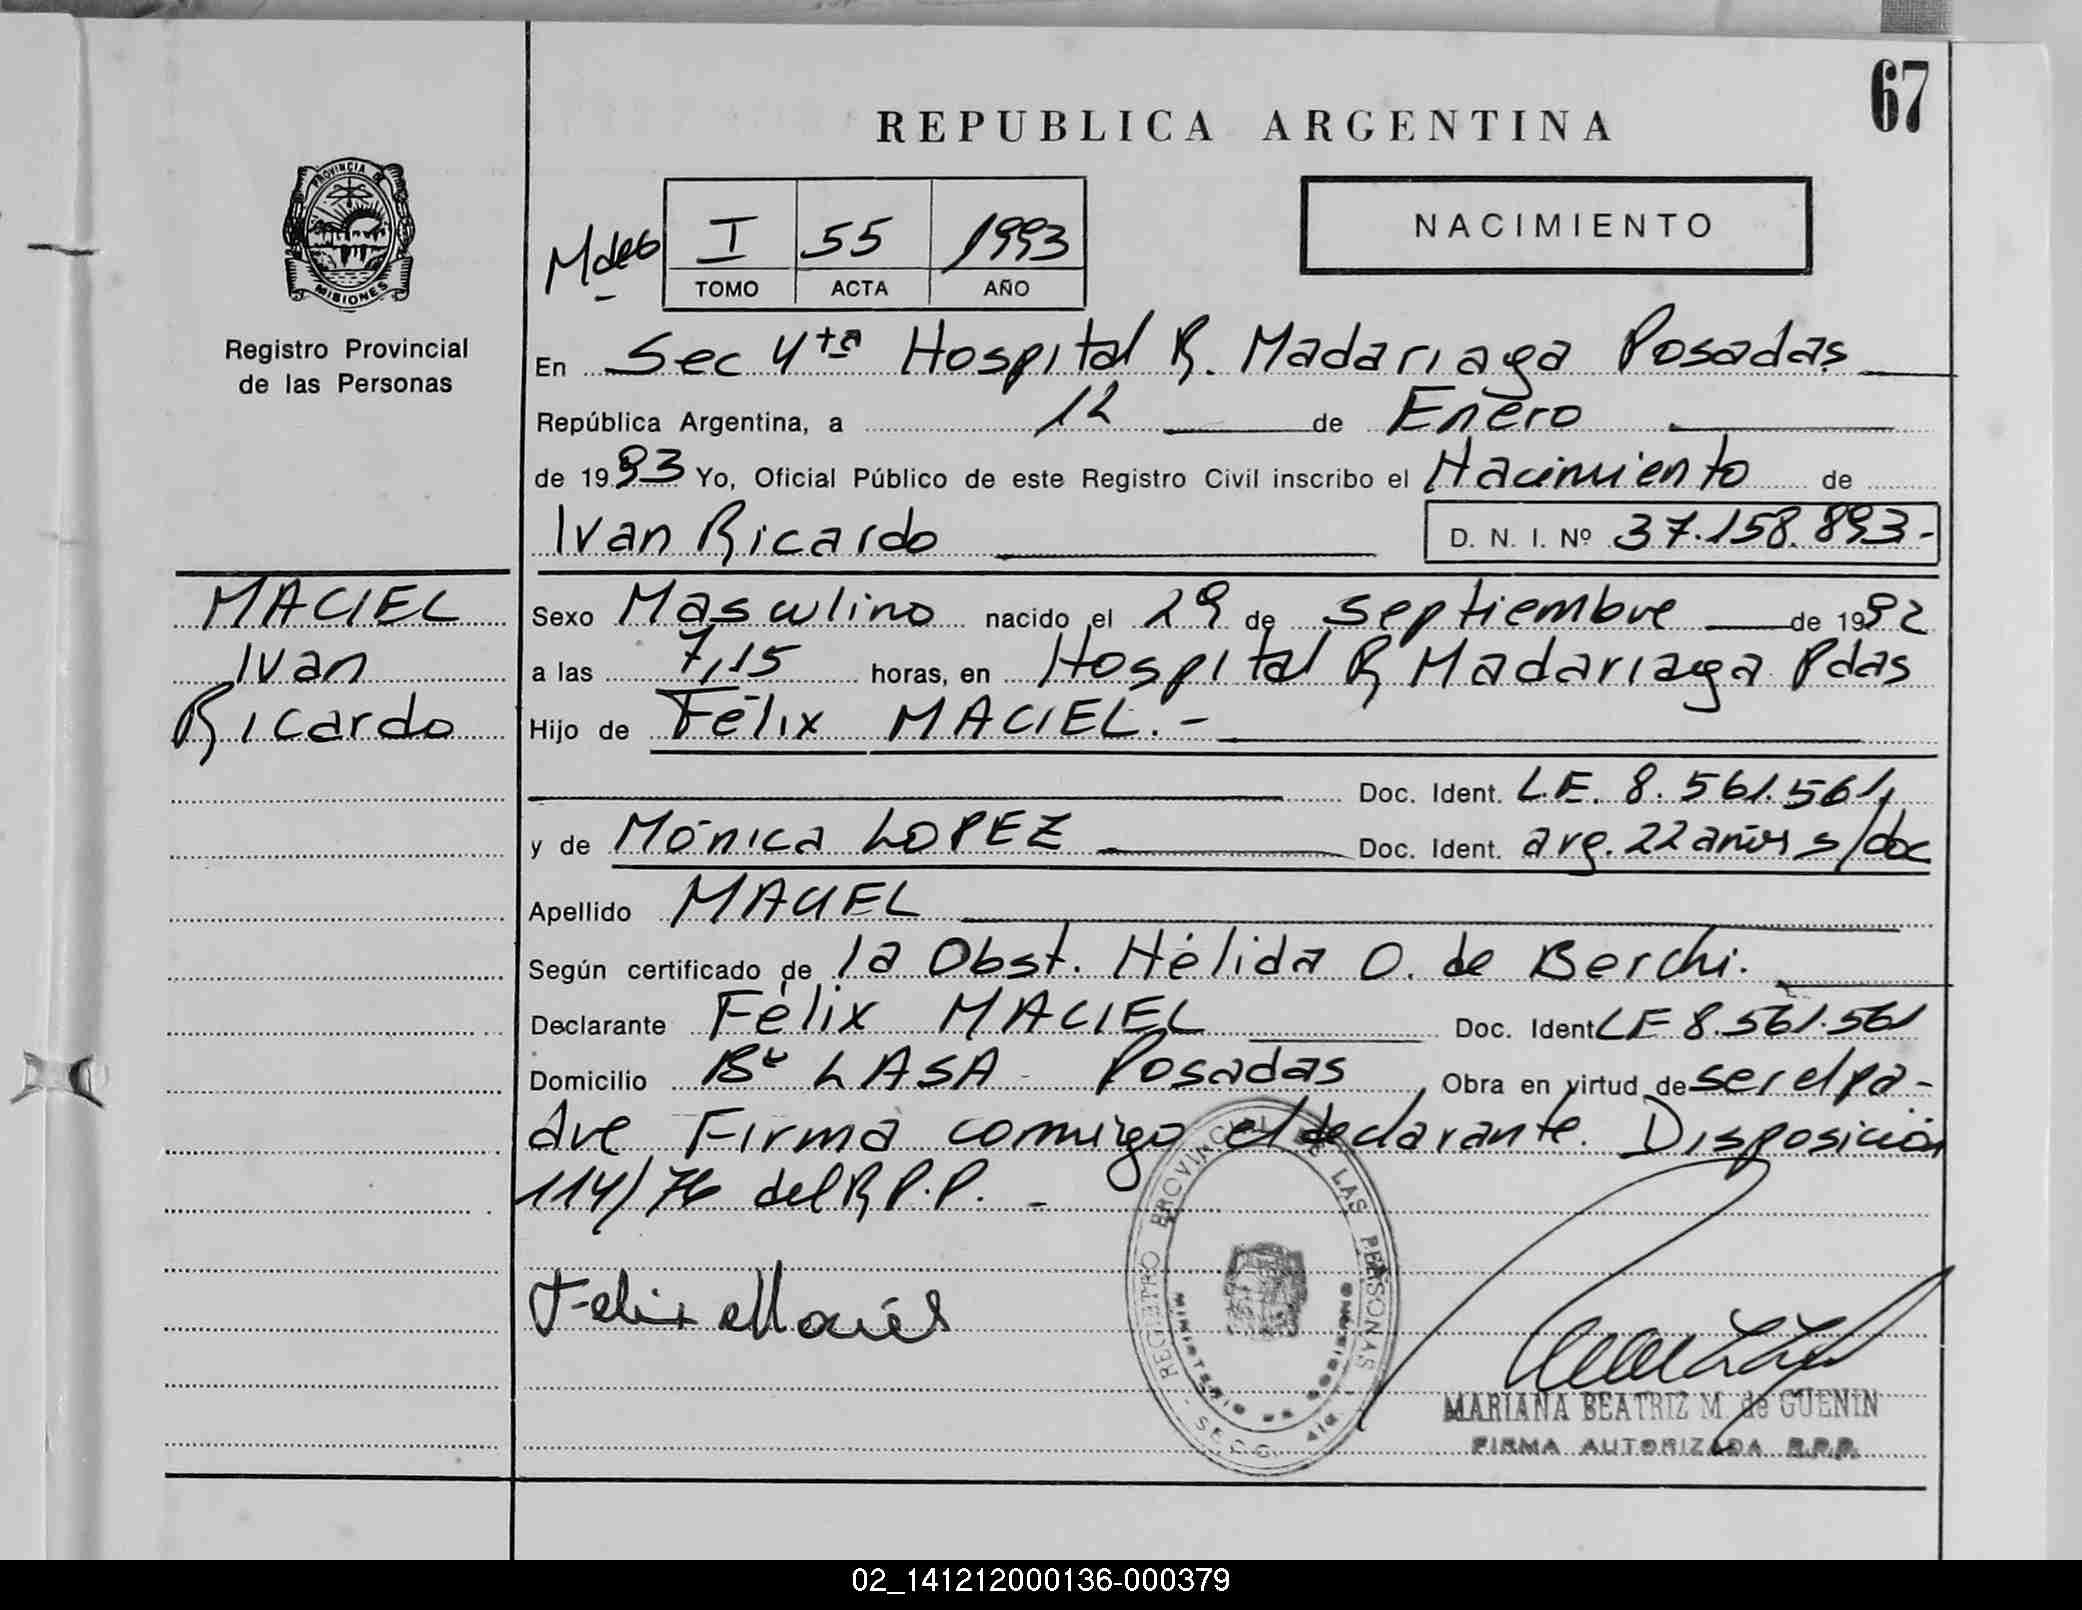 67
REPUBLICA ARGENTINA
PROVINCIA DE
MISIONES
Registro Provincial
de las Personas
I 55 1993
TOMO ACTA AÑO
NACIMIENTO
En Sec 4ta Hospital R. Madariaga Posadas
República Argentina, a 12 de Enero
de 1993 Yo, Oficial Público de este Registro Civil inscribo el Nacimiento de
Ivan Ricardo D. N. I. Nº 37.158.893-
MACIEL
Ivan
Ricardo
Sexo Masculino nacido el 29 de septiembre de 1992
a las 7,15 horas, en Hospital R Madariaga Pdas
Hijo de Félix MACIEL.-
Doc. Ident. L.E. 8.561.561
y de Mónica LOPEZ Doc. Ident. arg. 22 años s/doc
Apellido MACIEL
Según certificado de la Obst. Hélida O. de Berchi.
Declarante Félix MACIEL Doc. Ident LE 8.561.561
Domicilio Bº LASA - Posadas, Obra en virtud de ser el pa-
dre Firma conmigo el declarante. Disposición
114/76 del R.P.P. -
Felix Maciel
REGISTRO PROVINCIAL DE LAS PERSONAS
MINISTERIO DE GOBIERNO
MARIANA BEATRIZ M. de GUENIN
FIRMA AUTORIZADA R.P.P.
02_141212000136-000379